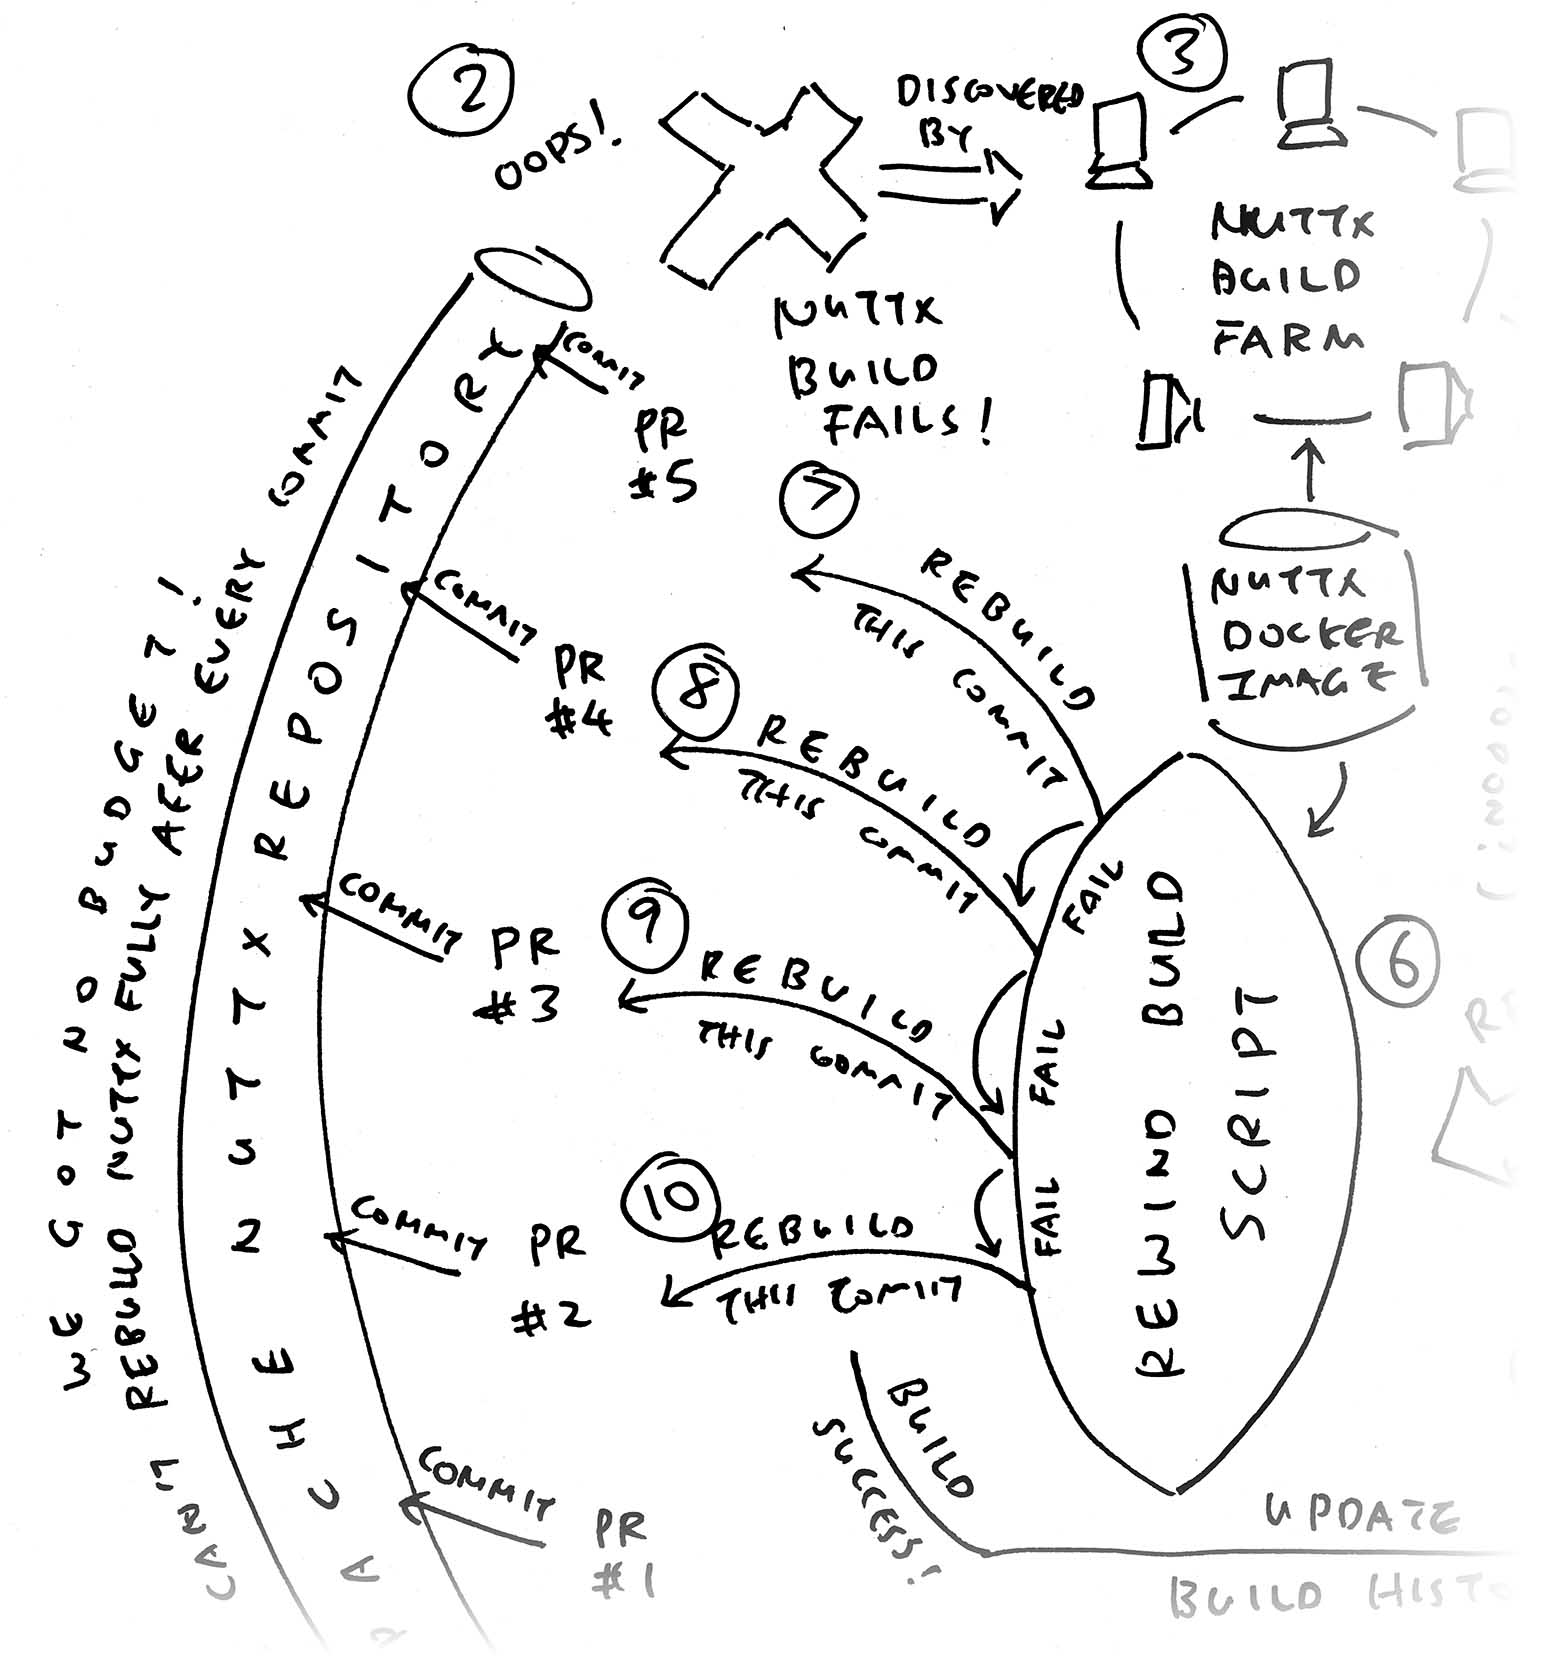 2
OOPS!
DISCOVERED
BY
3
NUTTX
BUILD
FARM
NUTTX
BUILD
FAILS!
COMMIT
PR
#5
WE GOT NO BUDGET!
CAN'T REBUILD NUTTX FULLY AFER EVERY COMMIT
NUTTX REPOSITORY
THE
COMMIT
PR
#4
COMMIT
PR
#3
COMMIT
PR
#2
COMMIT
PR
#1
NUTTX
DOCKER
IMAGE
6
REWIND BUILD
SCRIPT
7
REBUILD
THIS COMMIT
FAIL
8
REBUILD
THIS COMMIT
FAIL
9
REBUILD
THIS COMMIT
FAIL
10
REBUILD
THIS COMMIT
BUILD
SUCCESS!
UPDATE
BUILD HISTO